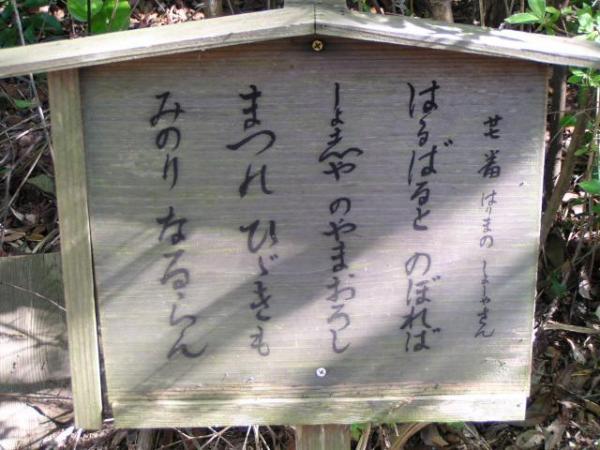 廿七番 はりまの しよしやさん
はるばると のぼれば
しよ志や のやまおろし
まつれ ひゞきも
みのり なるらん